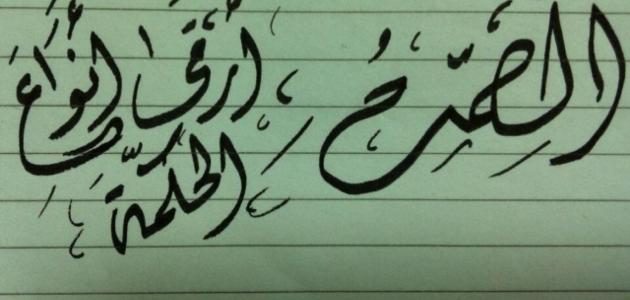 الصَّمتُ أرقى أنواع
الحكمة